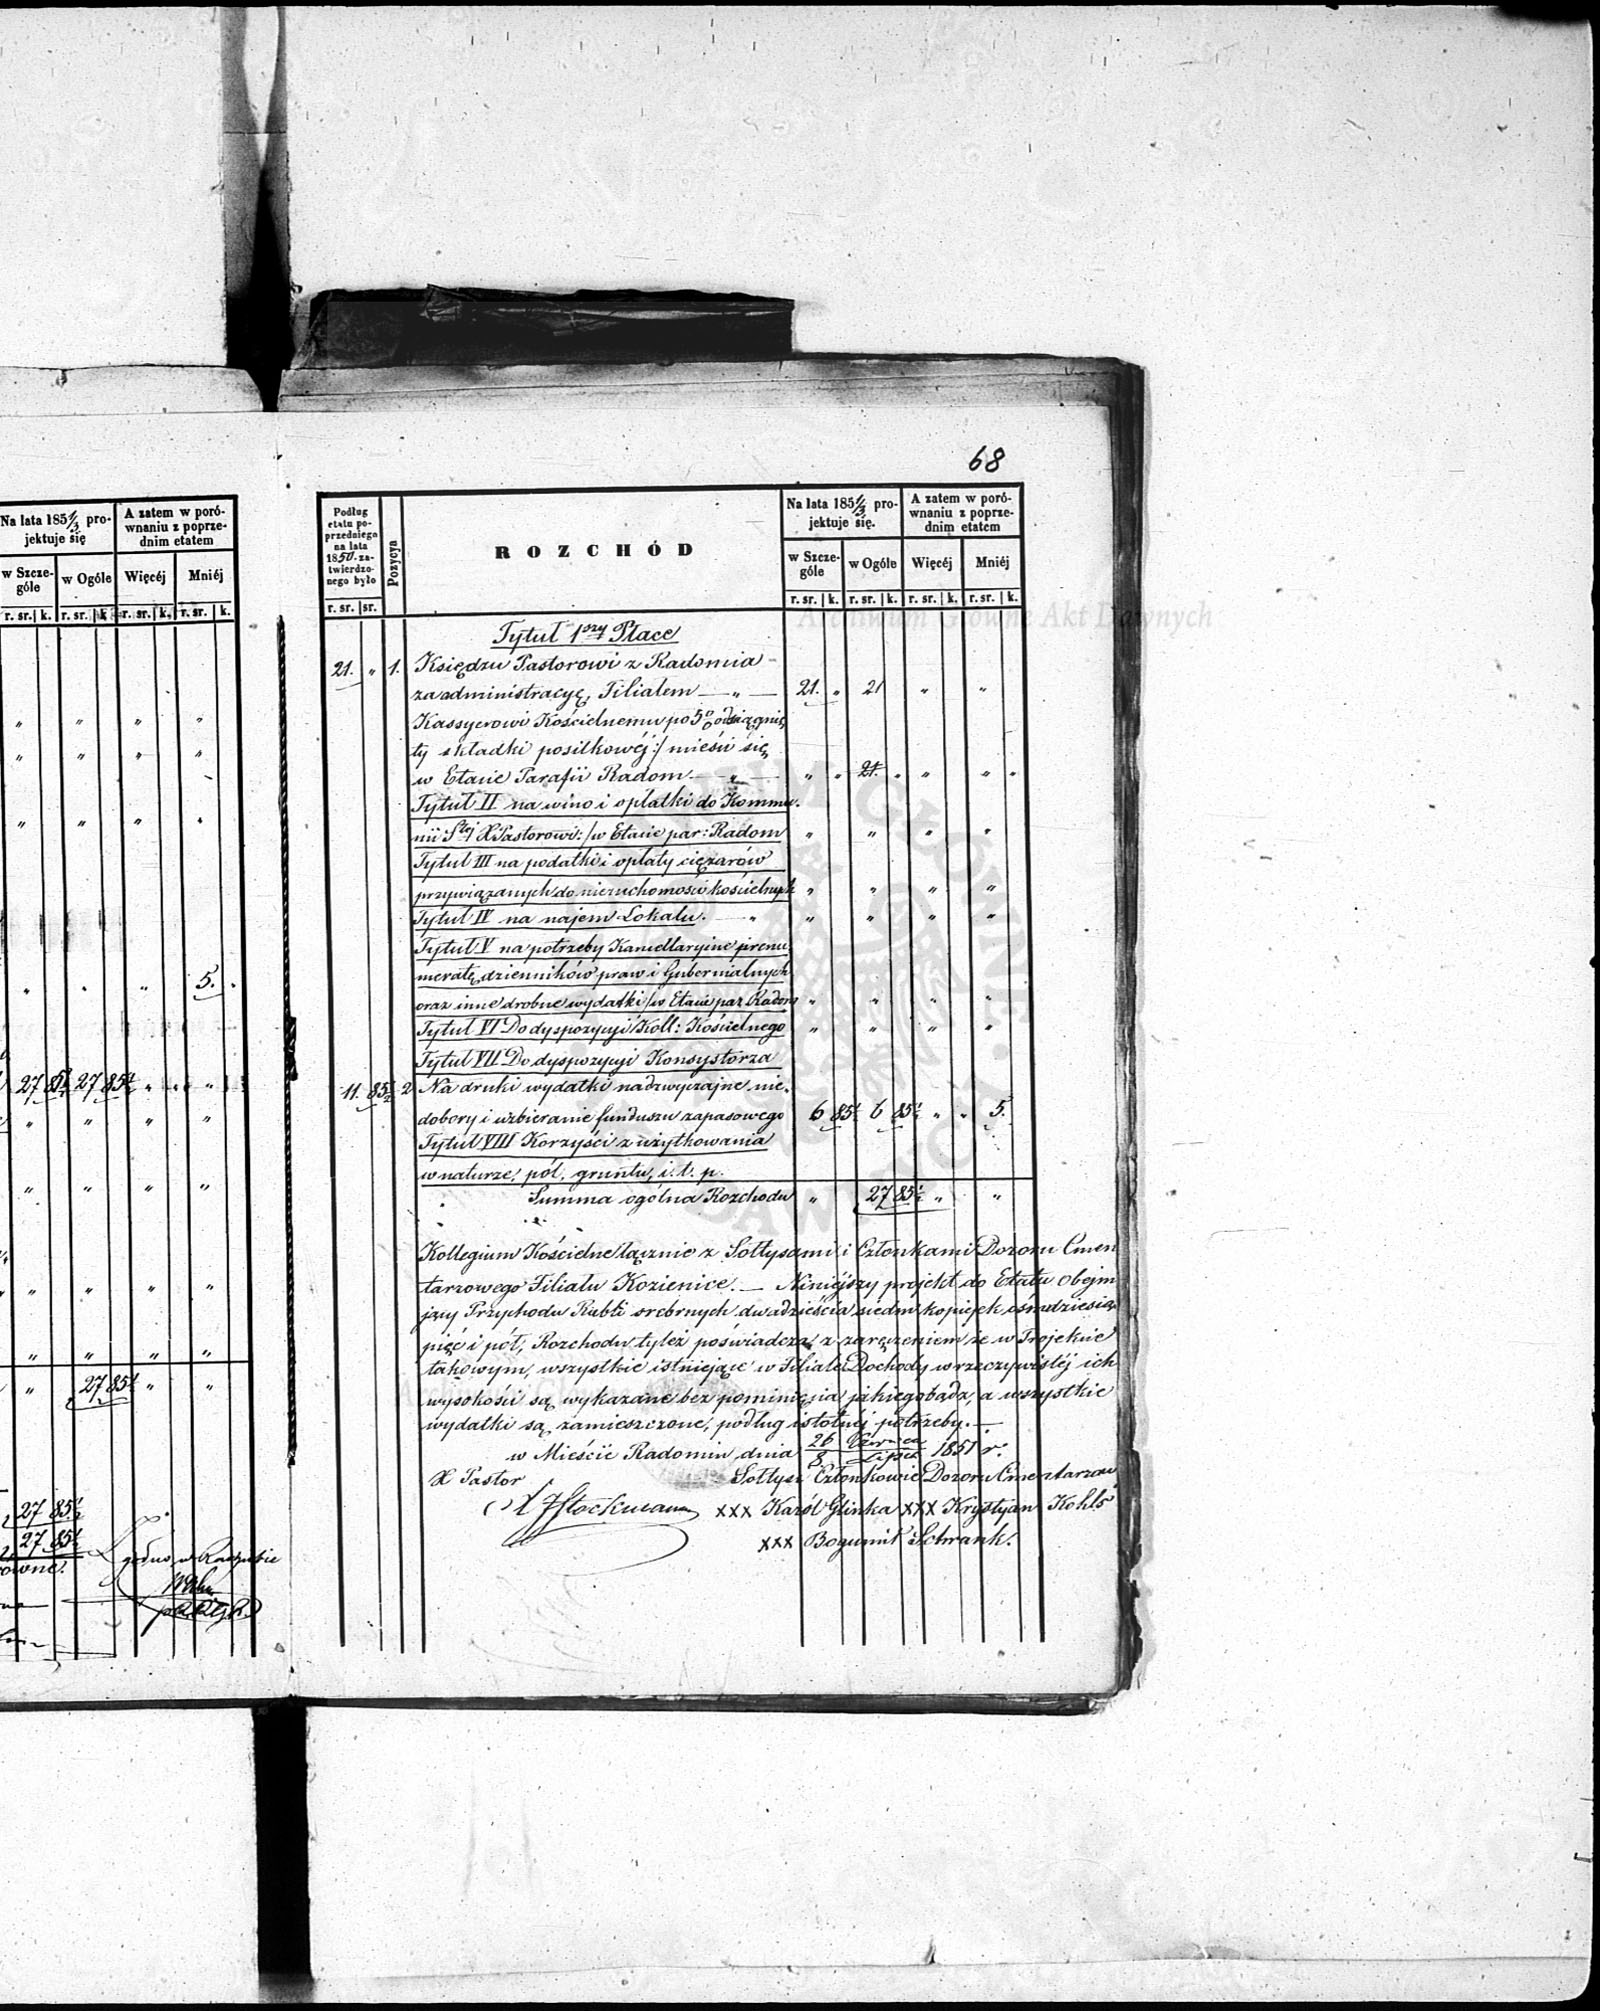 Na lata 1851/3 pro-
jektuje się
A zatem w poró-
wnaniu z poprze-
dnim etatem
w Szcze-
góle
w Ogóle
Więcéj
Mniéj
r. sr. k. r. sr. k. r. sr. k. r. sr. k.
" " " "
" " " "
" " " "
" " " 5. "
27 85½ 27 85½ " "
" " " "
" " " "
" " " "
" " " "
" 27 85½ " "
27 85½
27 85½
równe.
68
Podług
etatu po-
przedniego
na lata
1850 za-
twierdzo-
nego było
Pozycya
ROZCHÓD
Na lata 1851/3 pro-
jektuje się.
A zatem w poró-
wnaniu z poprze-
dnim etatem
w Szcze-
góle
w Ogóle
Więcéj
Mniéj
r. sr. sr. r. sr. k. r. sr. k. r. sr. k. r. sr. k.
Archiwum Główne Akt Dawnych
Tytuł 1szy Płace
21. " 1. Księdzu Pastorowi z Radomia
za administracyę Filialem — " — 21. " 21 " "
Kassyerowi Kościelnemu po 5%
ty składki posiłkowéj :/ mieści się
w Etacie Parafii Radom. — " — " " 21. " " " "
Tytuł II na wino i opłatki do Kommu-
nii Stéj X Pastorowi :/ w Etacie par: Radom " " " "
Tytuł III na podatki i opłaty ciężarów
przywiązanych do nieruchomości kościelnych " " " "
Tytuł IV na najem Lokalu. — " " " " "
Tytuł V na potrzeby Kancellaryine prenu
meratę dzienników praw i Gubernialnych
oraz inne drobne wydatki /w Etacie par Radom " " " "
Tytuł VI Do dyspozycyi Koll: Kościelnego " " " "
Tytuł VII Do dyspozycyi Konsystorza
11. 85½ 2 Na druki wydatki nadzwyczajne nie-
dobory i uzbieranie funduszu zapasowego 6 85½ 6 85½ " " 5.
Tytuł VIII Korzyści z użytkowania
w naturze, pól, gruntu, i. t. p.
Summa ogólna Rozchodu " 27 85½ " "
Kollegium Kościelne łącznie z Sołtysami i Członkami Dozoru Cmen
tarzowego Filiału Kozienice. — Niniejszy projekt do Etatu obejm
jący Przychodu Rubli srebrnych dwadzieścia siedm kopiejek ośmdziesią
pięć i pół, Rozchodu tyleż poświadcza z zaręczeniem że w Projekcie
takowym, wszystkie istniejące w Filiale Dochody w rzeczywistéj ich
wysokości są wykazane bez pominięcia jakiegobądź, a wszystkie
wydatki są zamieszczone, podług istotnéj potrzeby. —
w Mieście Radomiu dnia 26 Czerwca / 8 Lipca 1851 r.
X Pastor Sołtysi Członkowie Dozoru Cmentarzow
XXX Karól Glinka XXX Krystyan Kohls
XXX Bogumił Schrank.